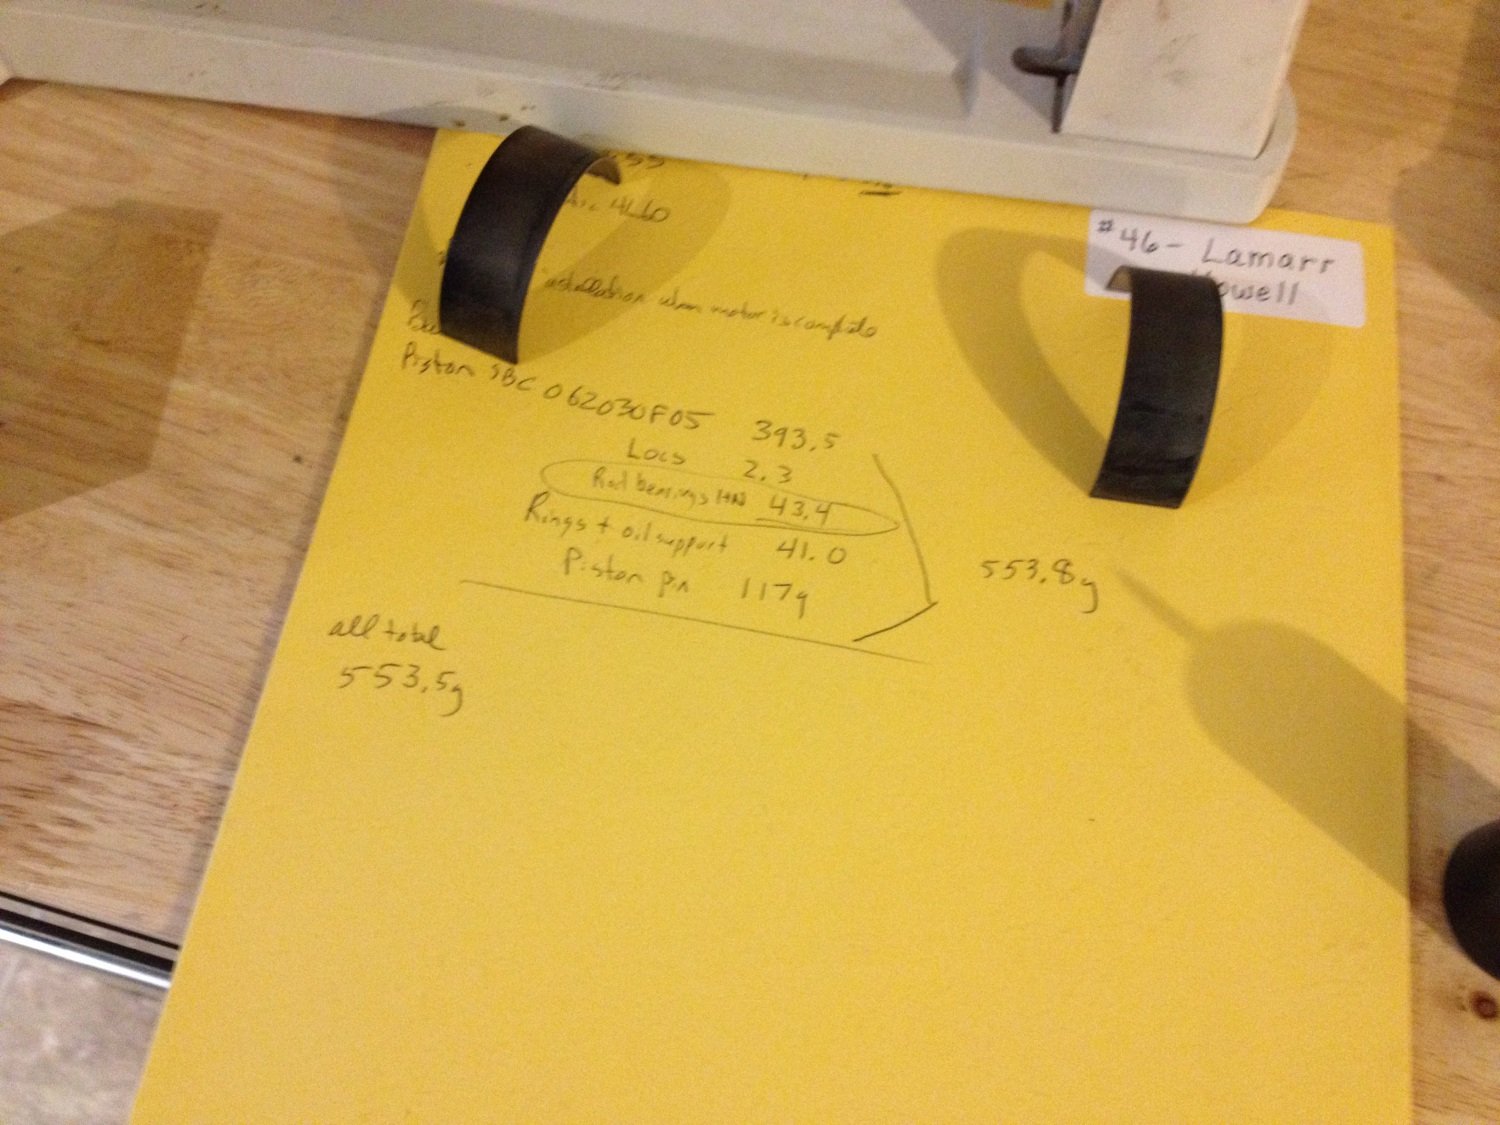 55
4L60
#46- Lamarr
owell
installation when motor is complete
Piston SBC 062030F05 393.5
Locs 2.3
Rod bearings HN 43.4
Rings + oil support 41.0
Piston pin 117g
553.8g
all total
553.5g